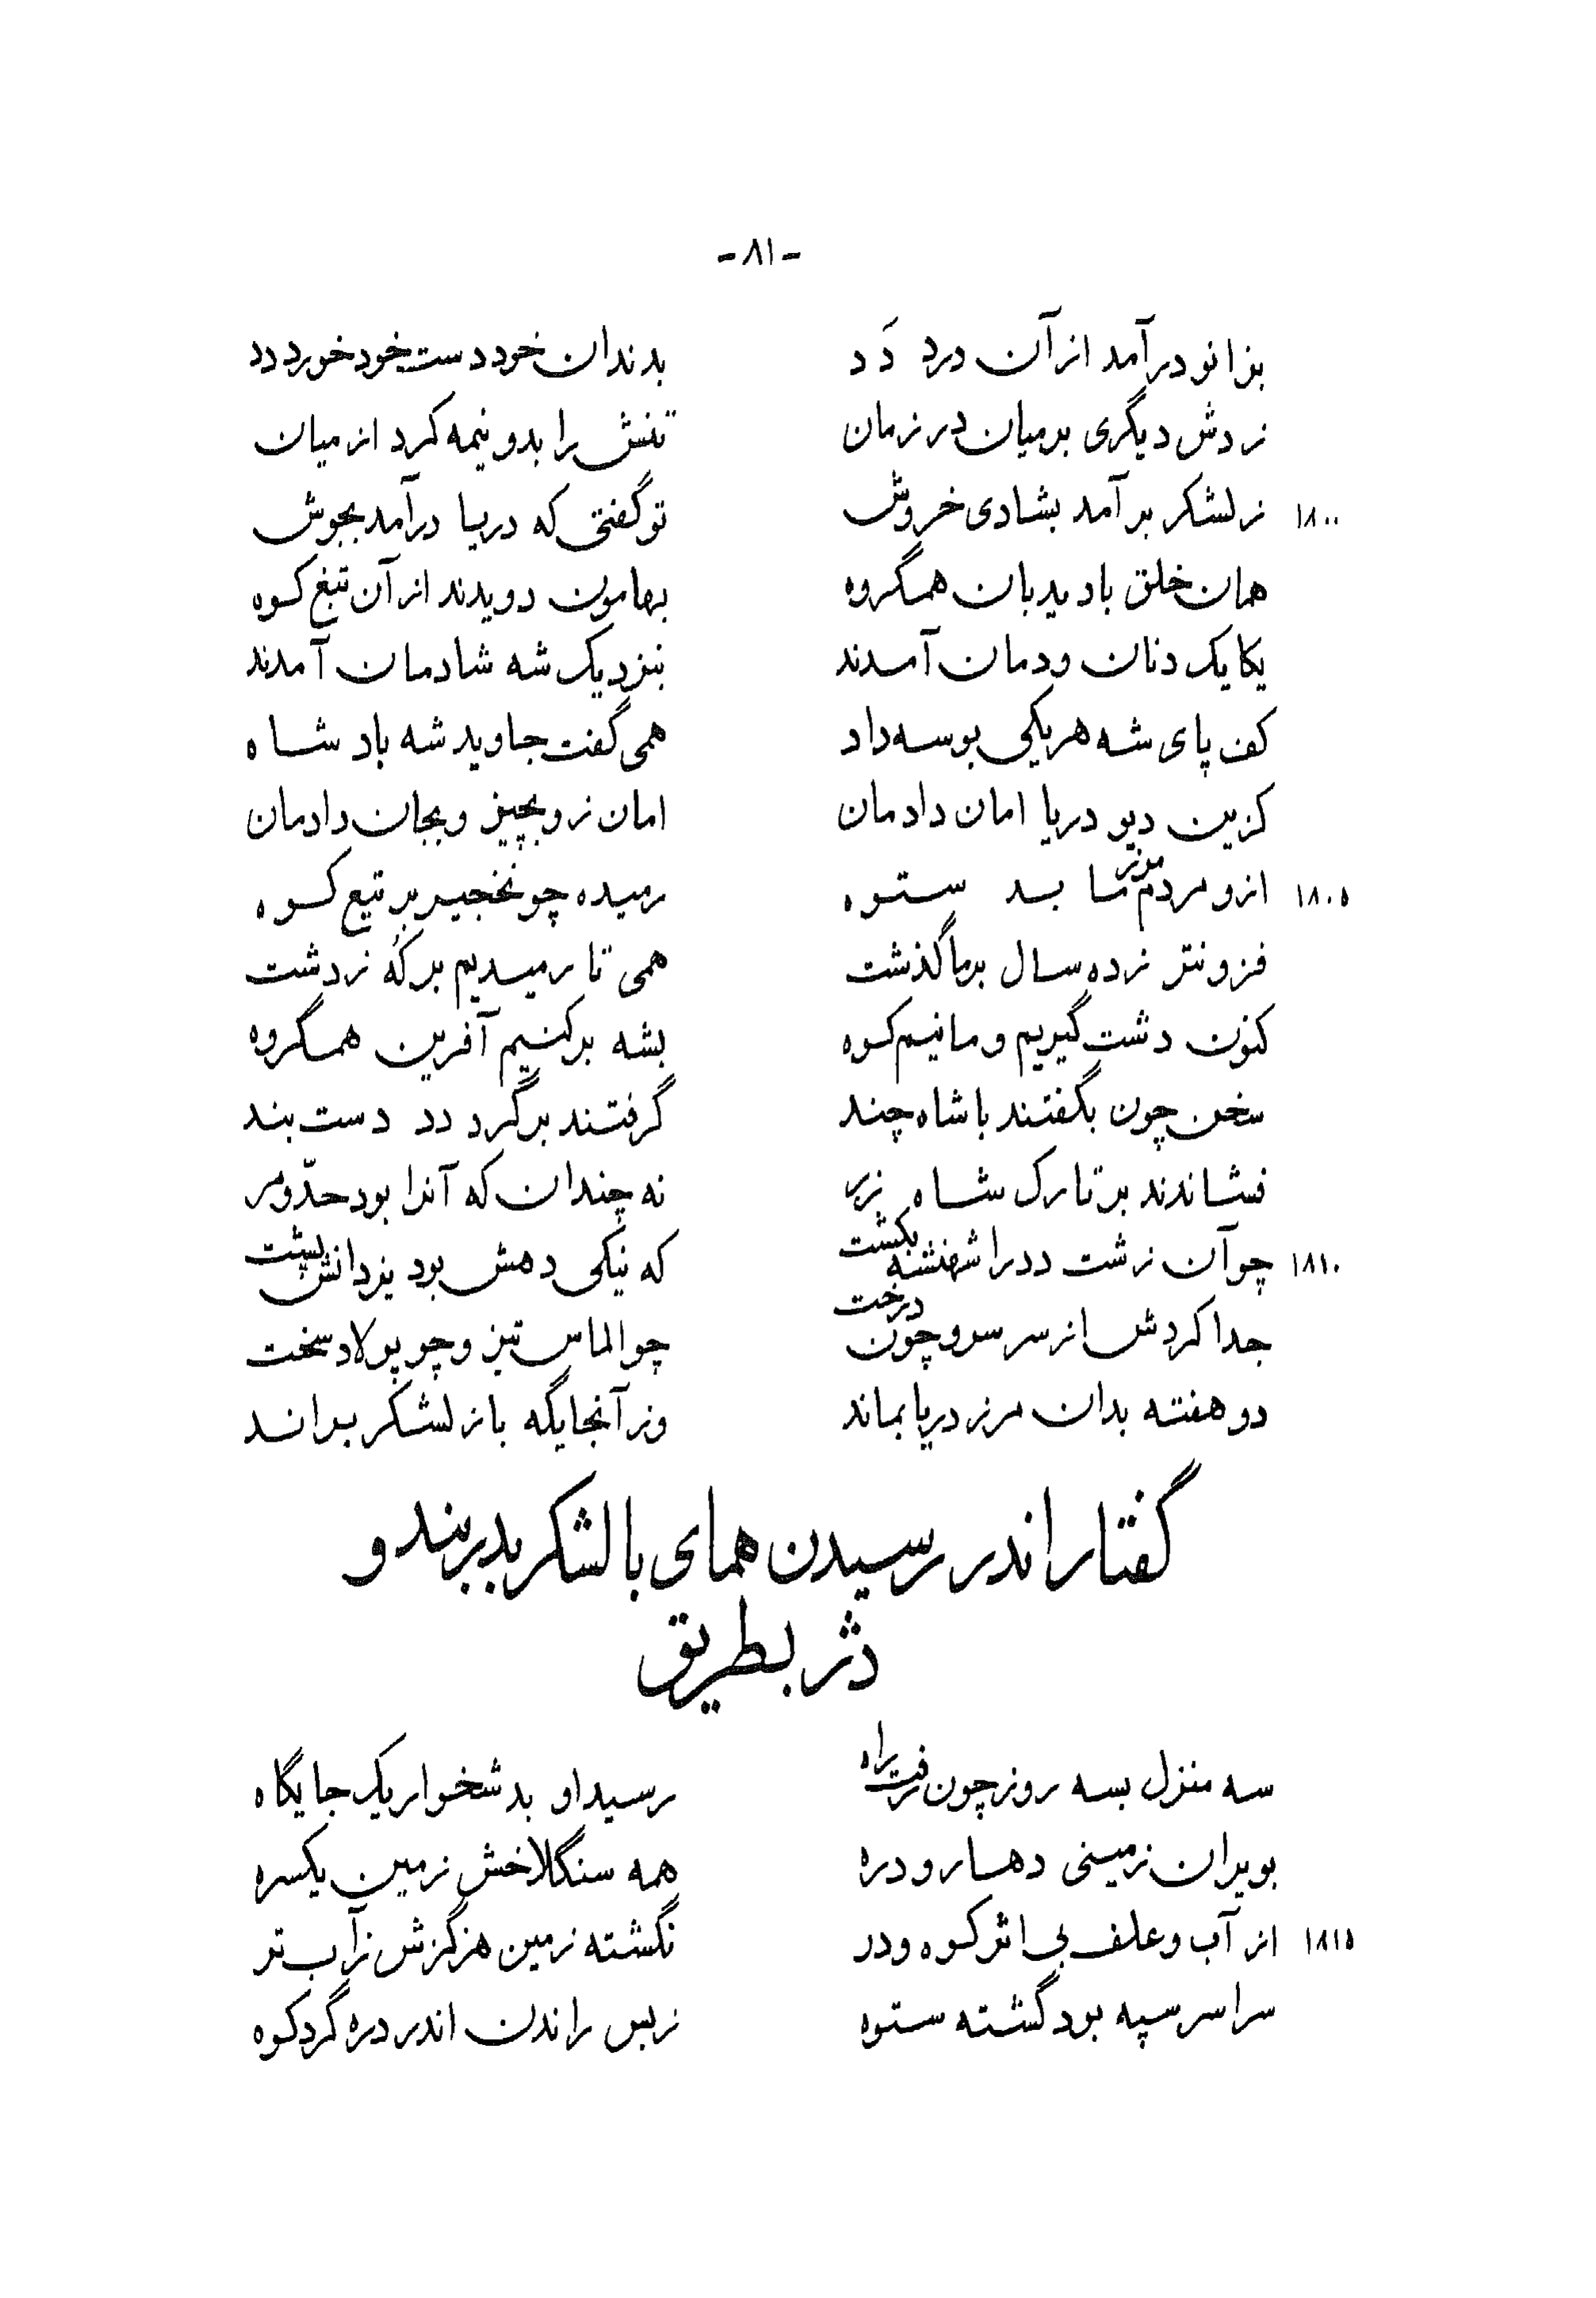 -۸۱-
بزانو درآمد از آن درد دَد بدندان خود دست خود خورد دد
زدش دیگری بر میان در زمان تنش را بدو نیمه کرد از میان
۱۸۰۰ ز لشکر برآمد بشادی خروش تو گفتی که دریا درآمد بجوش
همان خلق با دیدبان همگروه بهامون دویدند از آن تیغ کوه
یکایک دنان و دمان آمدند بنزدیک شه شادمان آمدند
کف پای شه هر یکی بوسه داد همی گفت جاوید شه باد شاه
کزین دیو دریا امان دادمان امان زو بچیز و بجان دادمان
۱۸۰۵ ازو مردم مرز ما بد ستوه رمیده چو نخجیر بر تیغ کوه
فزونتر ز ده سال بر ما گذشت همی تا رمیدیم بر کُه ز دشت
کنون دشت گیریم و مانیم کوه بشه بر کنیم آفرین همگروه
سخن چون بگفتند با شاه چند گرفتند بر گرد دد دست بند
فشاندند بر تارک شاه زر نه چندان که آنرا بود حدّ و مر
۱۸۱۰ چو آن زشت دد را شهنشه بکشت که نیکی دهش بود یزدانش پشت
جدا کردش از سر سرو چون درخت چو الماس تیز و چو پولاد سخت
دو هفته بدان مرز دریا بماند وز آنجایگه باز لشکر براند
گفتار اندر رسیدن همای با لشکر بدربند و
دژ بطریق
سه منزل بسه روز چون رفت راه رسید او بدشخوار یک جایگاه
بویران زمینی دهار و دره همه سنگلاخش زمین یکسره
۱۸۱۵ از آب و علف بی اثر کوه و در نگشته زمین هرگزش زآب تر
سراسر سپه بود گشته ستوه ز بس راندن اندر دره گرد کوه